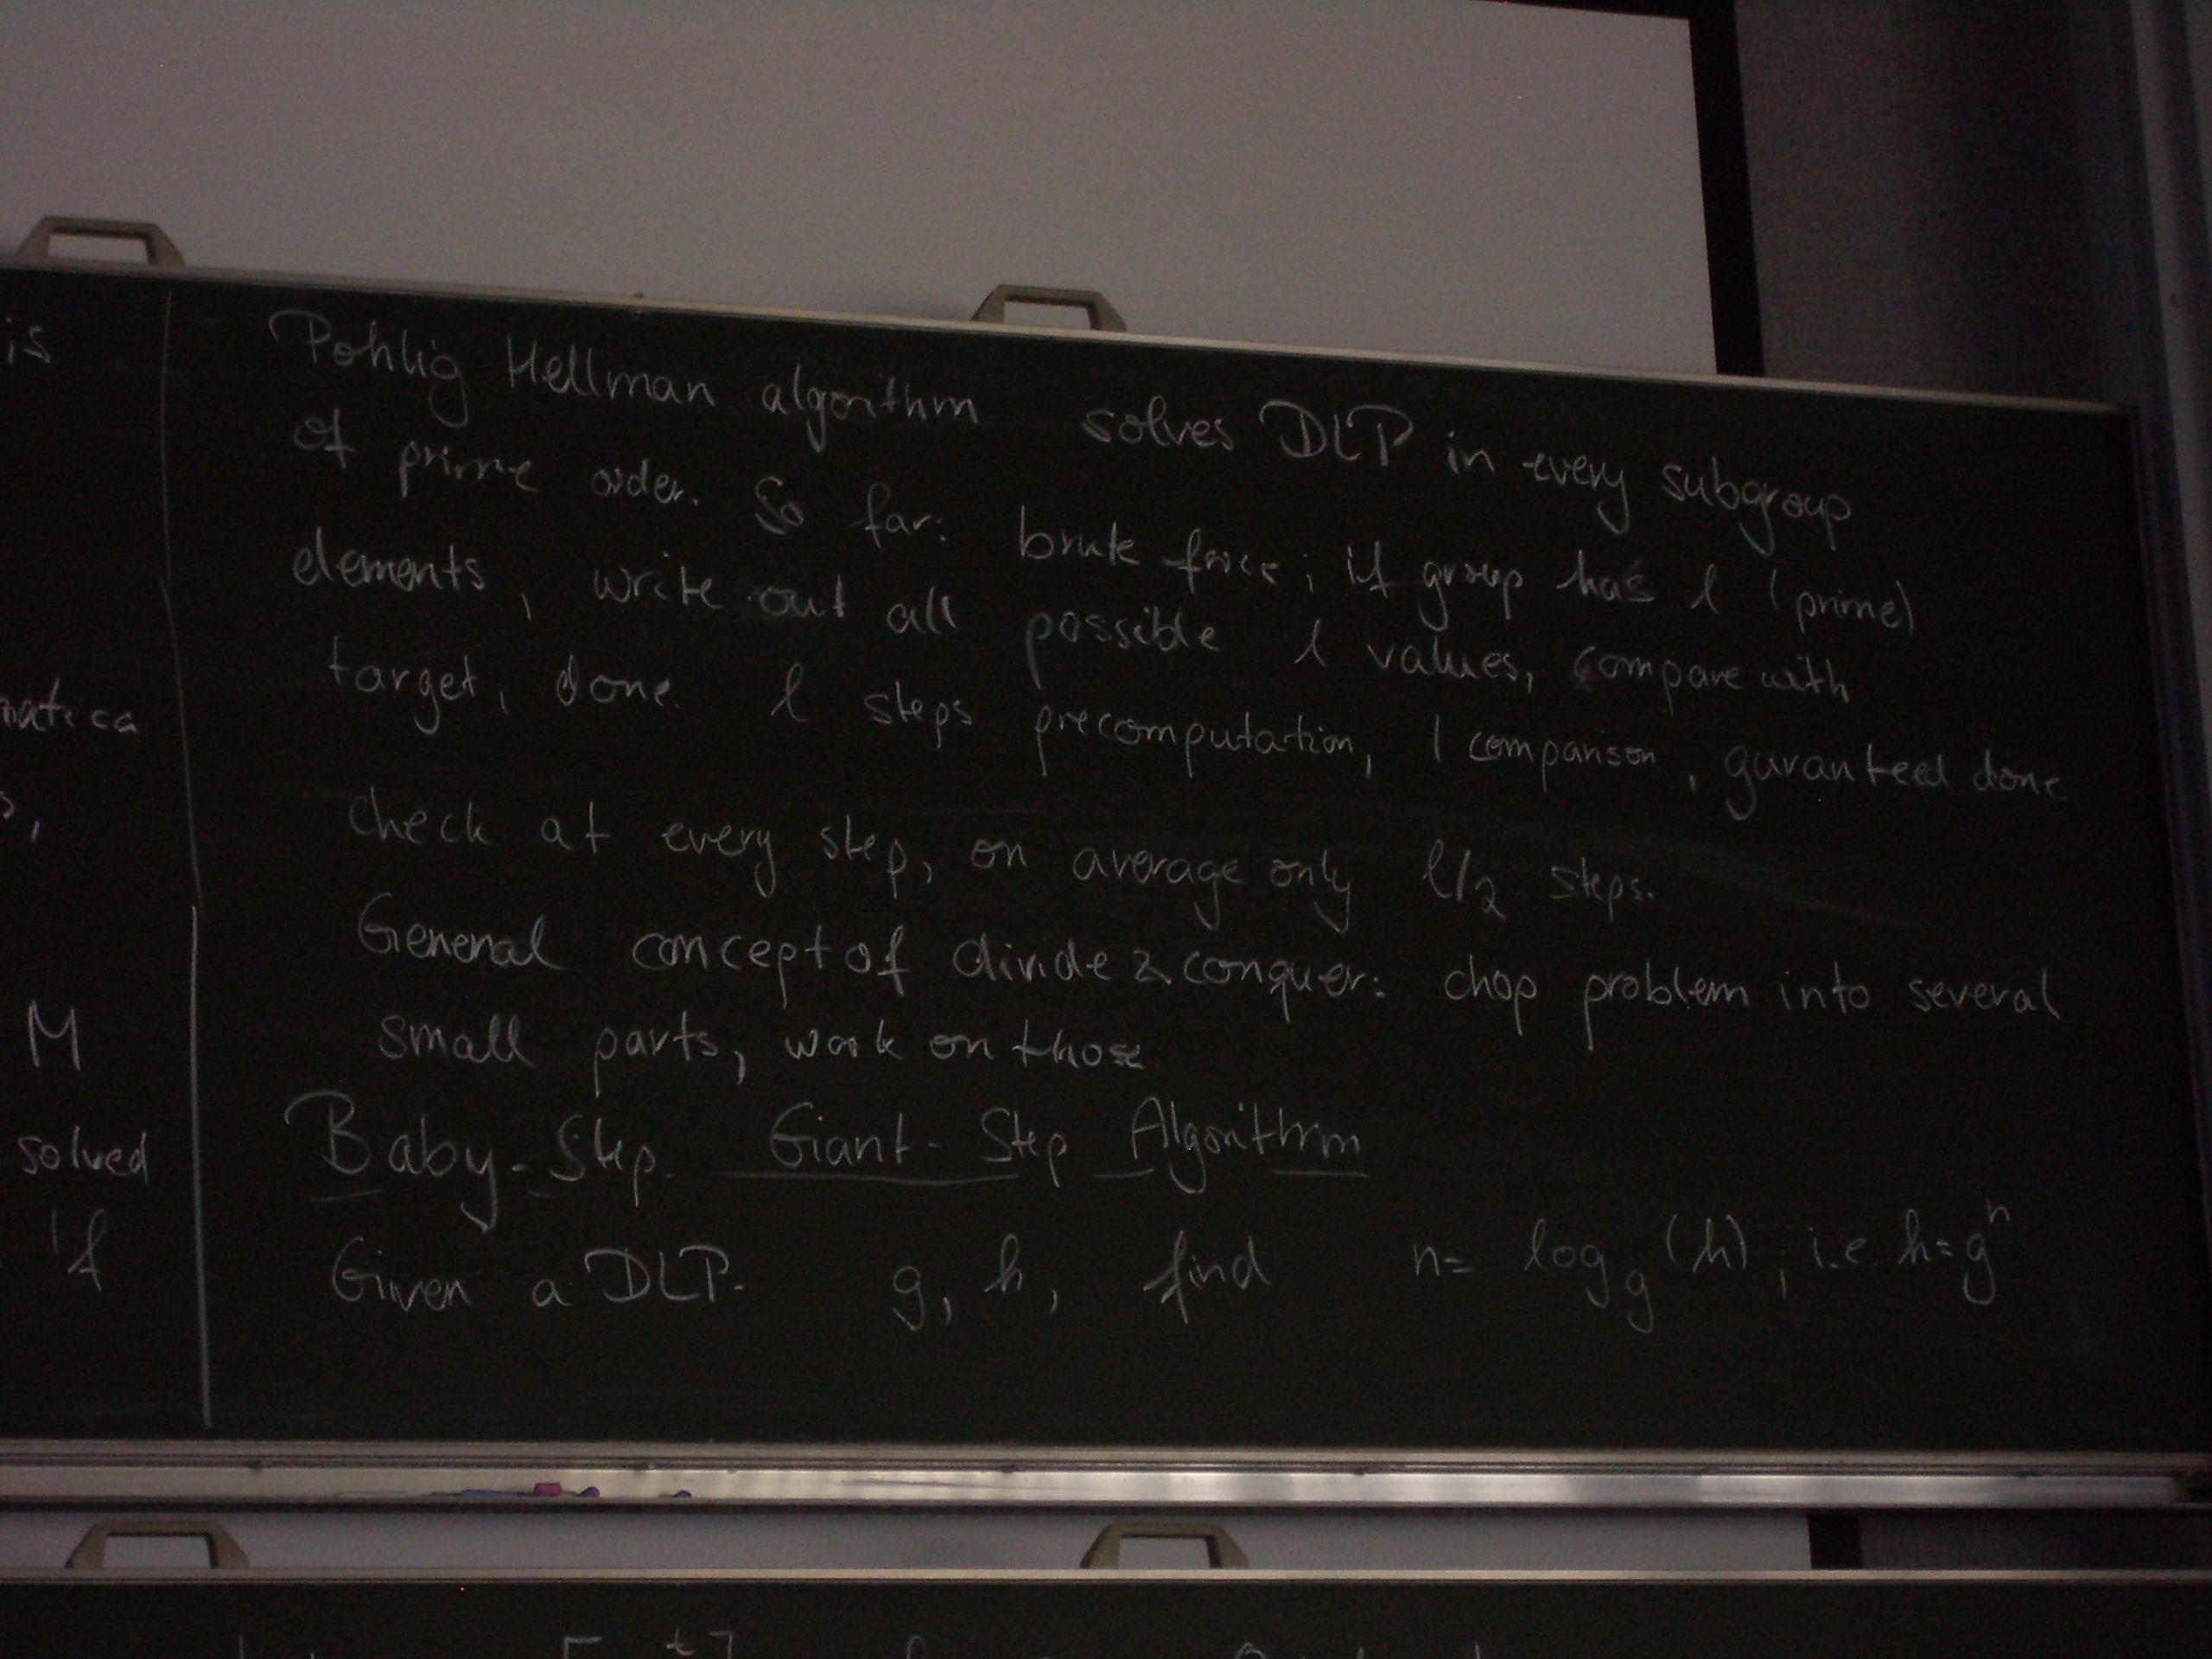 is
natica
M
solved
if
Pohlig Hellman algorithm solves DLP in every subgroup
of prime order. So far: brute force; if group has l (prime)
elements, write out all possible l values, compare with
target, done. l steps precomputation, 1 comparison, guranteed done
check at every step, on average only l/2 steps.
General concept of divide & conquer: chop problem into several
small parts, work on those
Baby-Step Giant-Step Algorithm
Given a DLP. g, h, find n= log_g (h), i.e. h=g^n